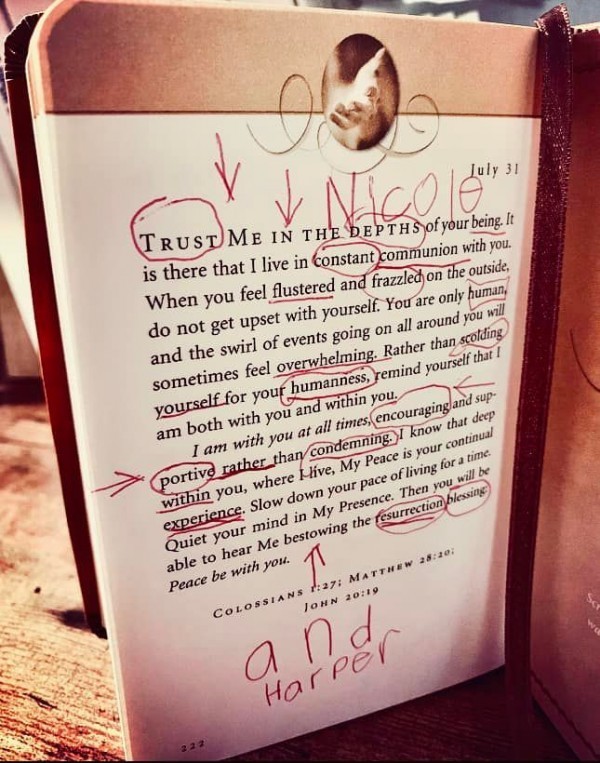 July 31
Nicole
TRUST ME IN THE DEPTHS of your being. It
is there that I live in constant communion with you.
When you feel flustered and frazzled on the outside,
do not get upset with yourself. You are only human,
and the swirl of events going on all around you will
sometimes feel overwhelming. Rather than scolding
yourself for your humanness, remind yourself that I
am both with you and within you.
I am with you at all times, encouraging and sup-
portive rather than condemning. I know that deep
within you, where I live, My Peace is your continual
experience. Slow down your pace of living for a time.
Quiet your mind in My Presence. Then you will be
able to hear Me bestowing the resurrection blessing:
Peace be with you.
COLOSSIANS 1:27; MATTHEW 28:20;
JOHN 20:19
and
Harper
222